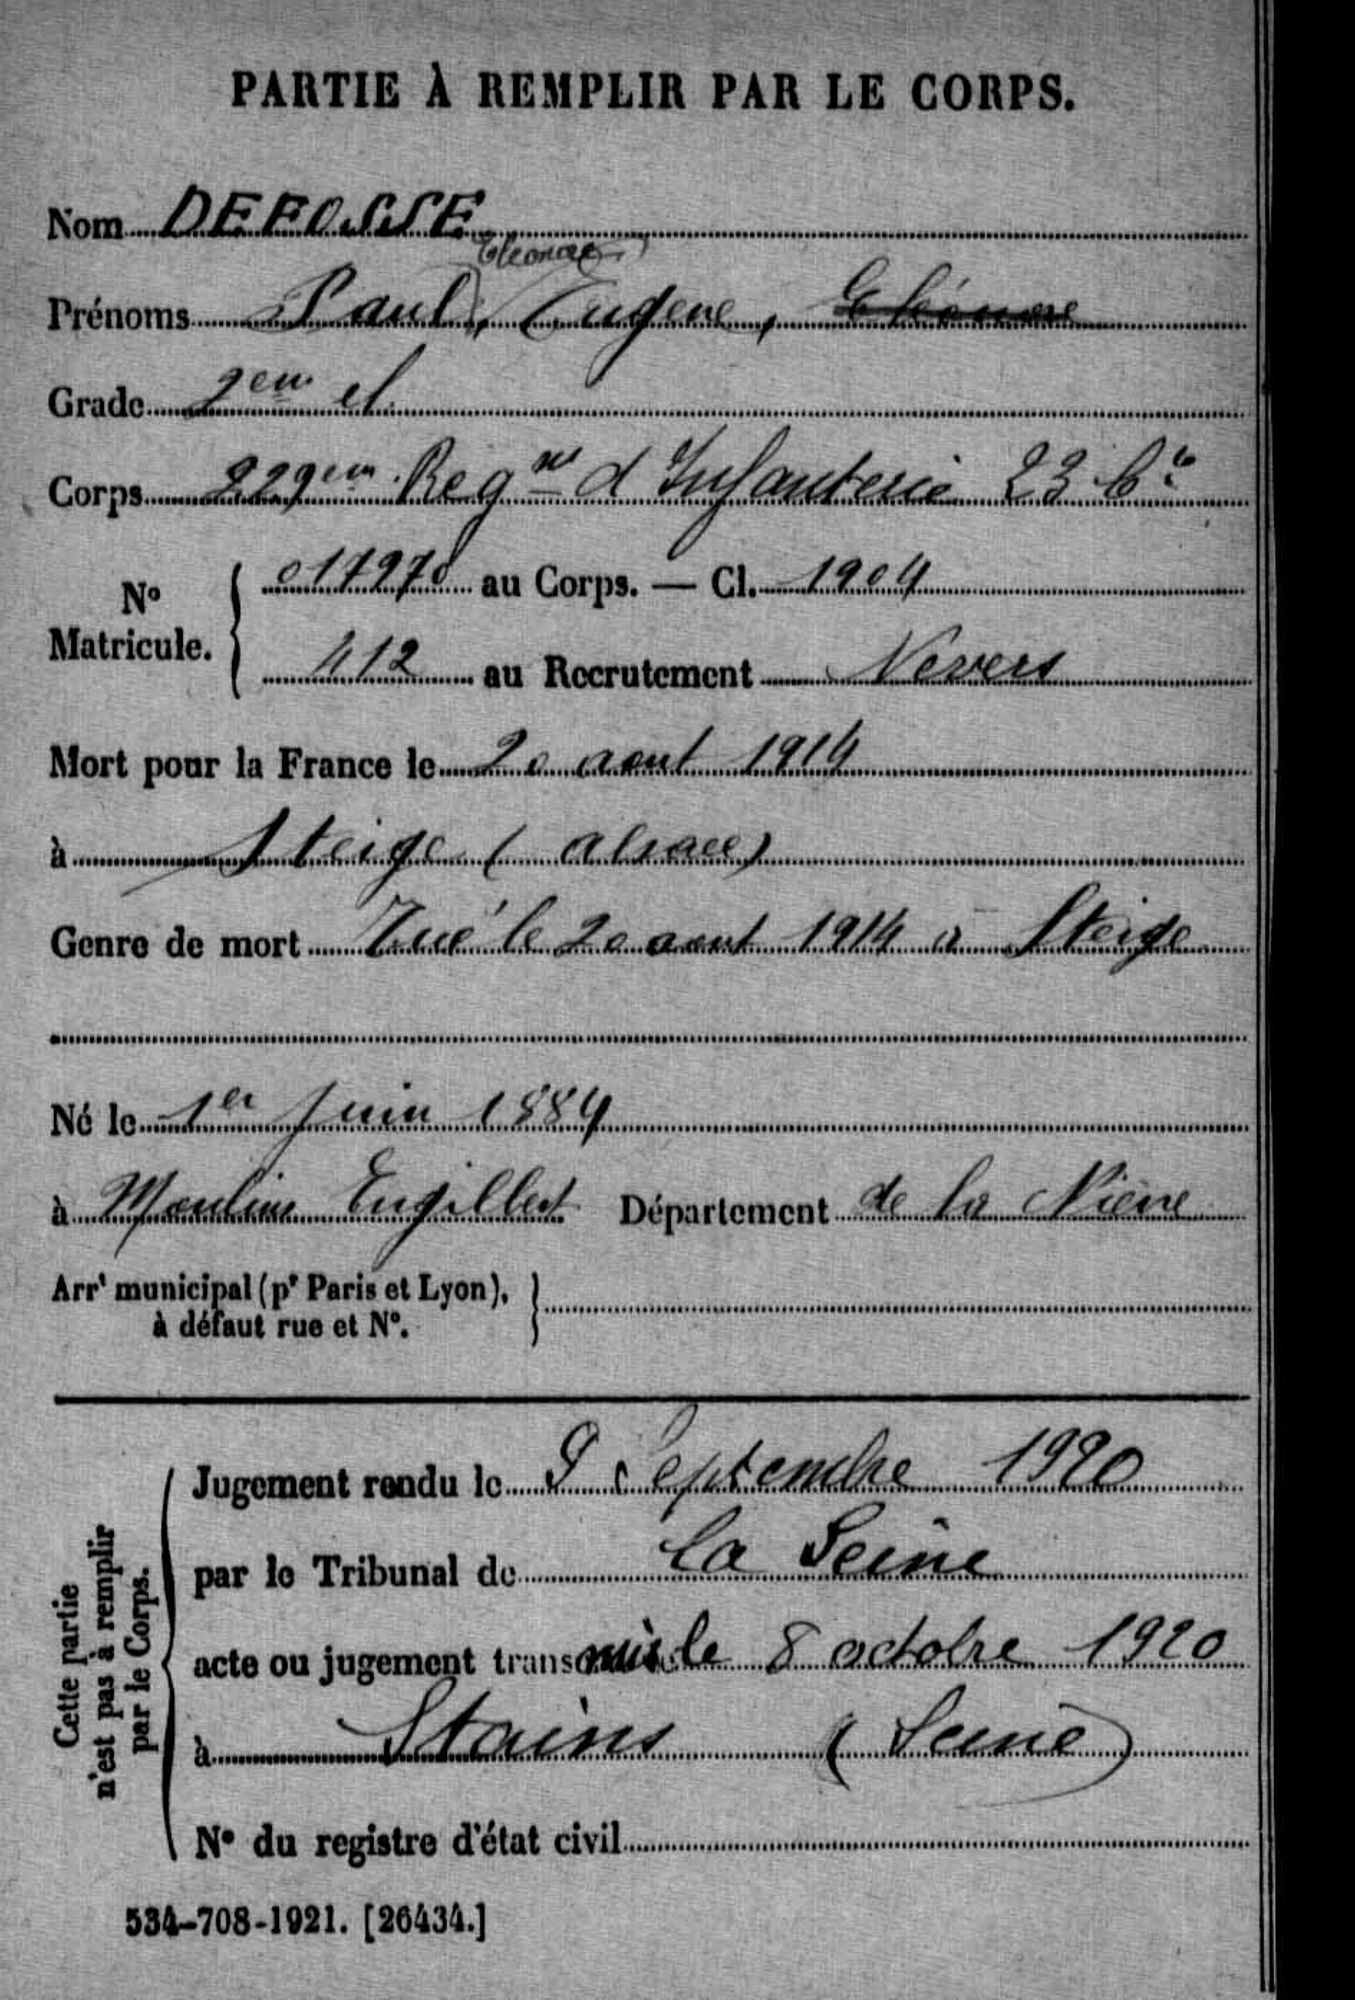 PARTIE À REMPLIR PAR LE CORPS.
Nom DEFOSSE
Eléonore
Prénoms Paul, Eugène, Eléonore
Grade 2em cl.
Corps 229em Regnt d'Infanterie 23 Cie
No Matricule. 017970 au Corps. — Cl. 1904
412 au Recrutement Nevers
Mort pour la France le 20 aout 1914
à Steige (Alsace)
Genre de mort Tué le 20 aout 1914 à Steige
Né le 1er Juin 1884
à Moulins Engilbert Département de la Nièvre
Arrt municipal (pr Paris et Lyon),
à défaut rue et No.
Cette partie
n'est pas à remplir
par le Corps.
Jugement rendu le 9 Septembre 1920
par le Tribunal de la Seine
acte ou jugement transmis le 8 octobre 1920
à Stains (Seine)
No du registre d'état civil
534-708-1921. [26434.]